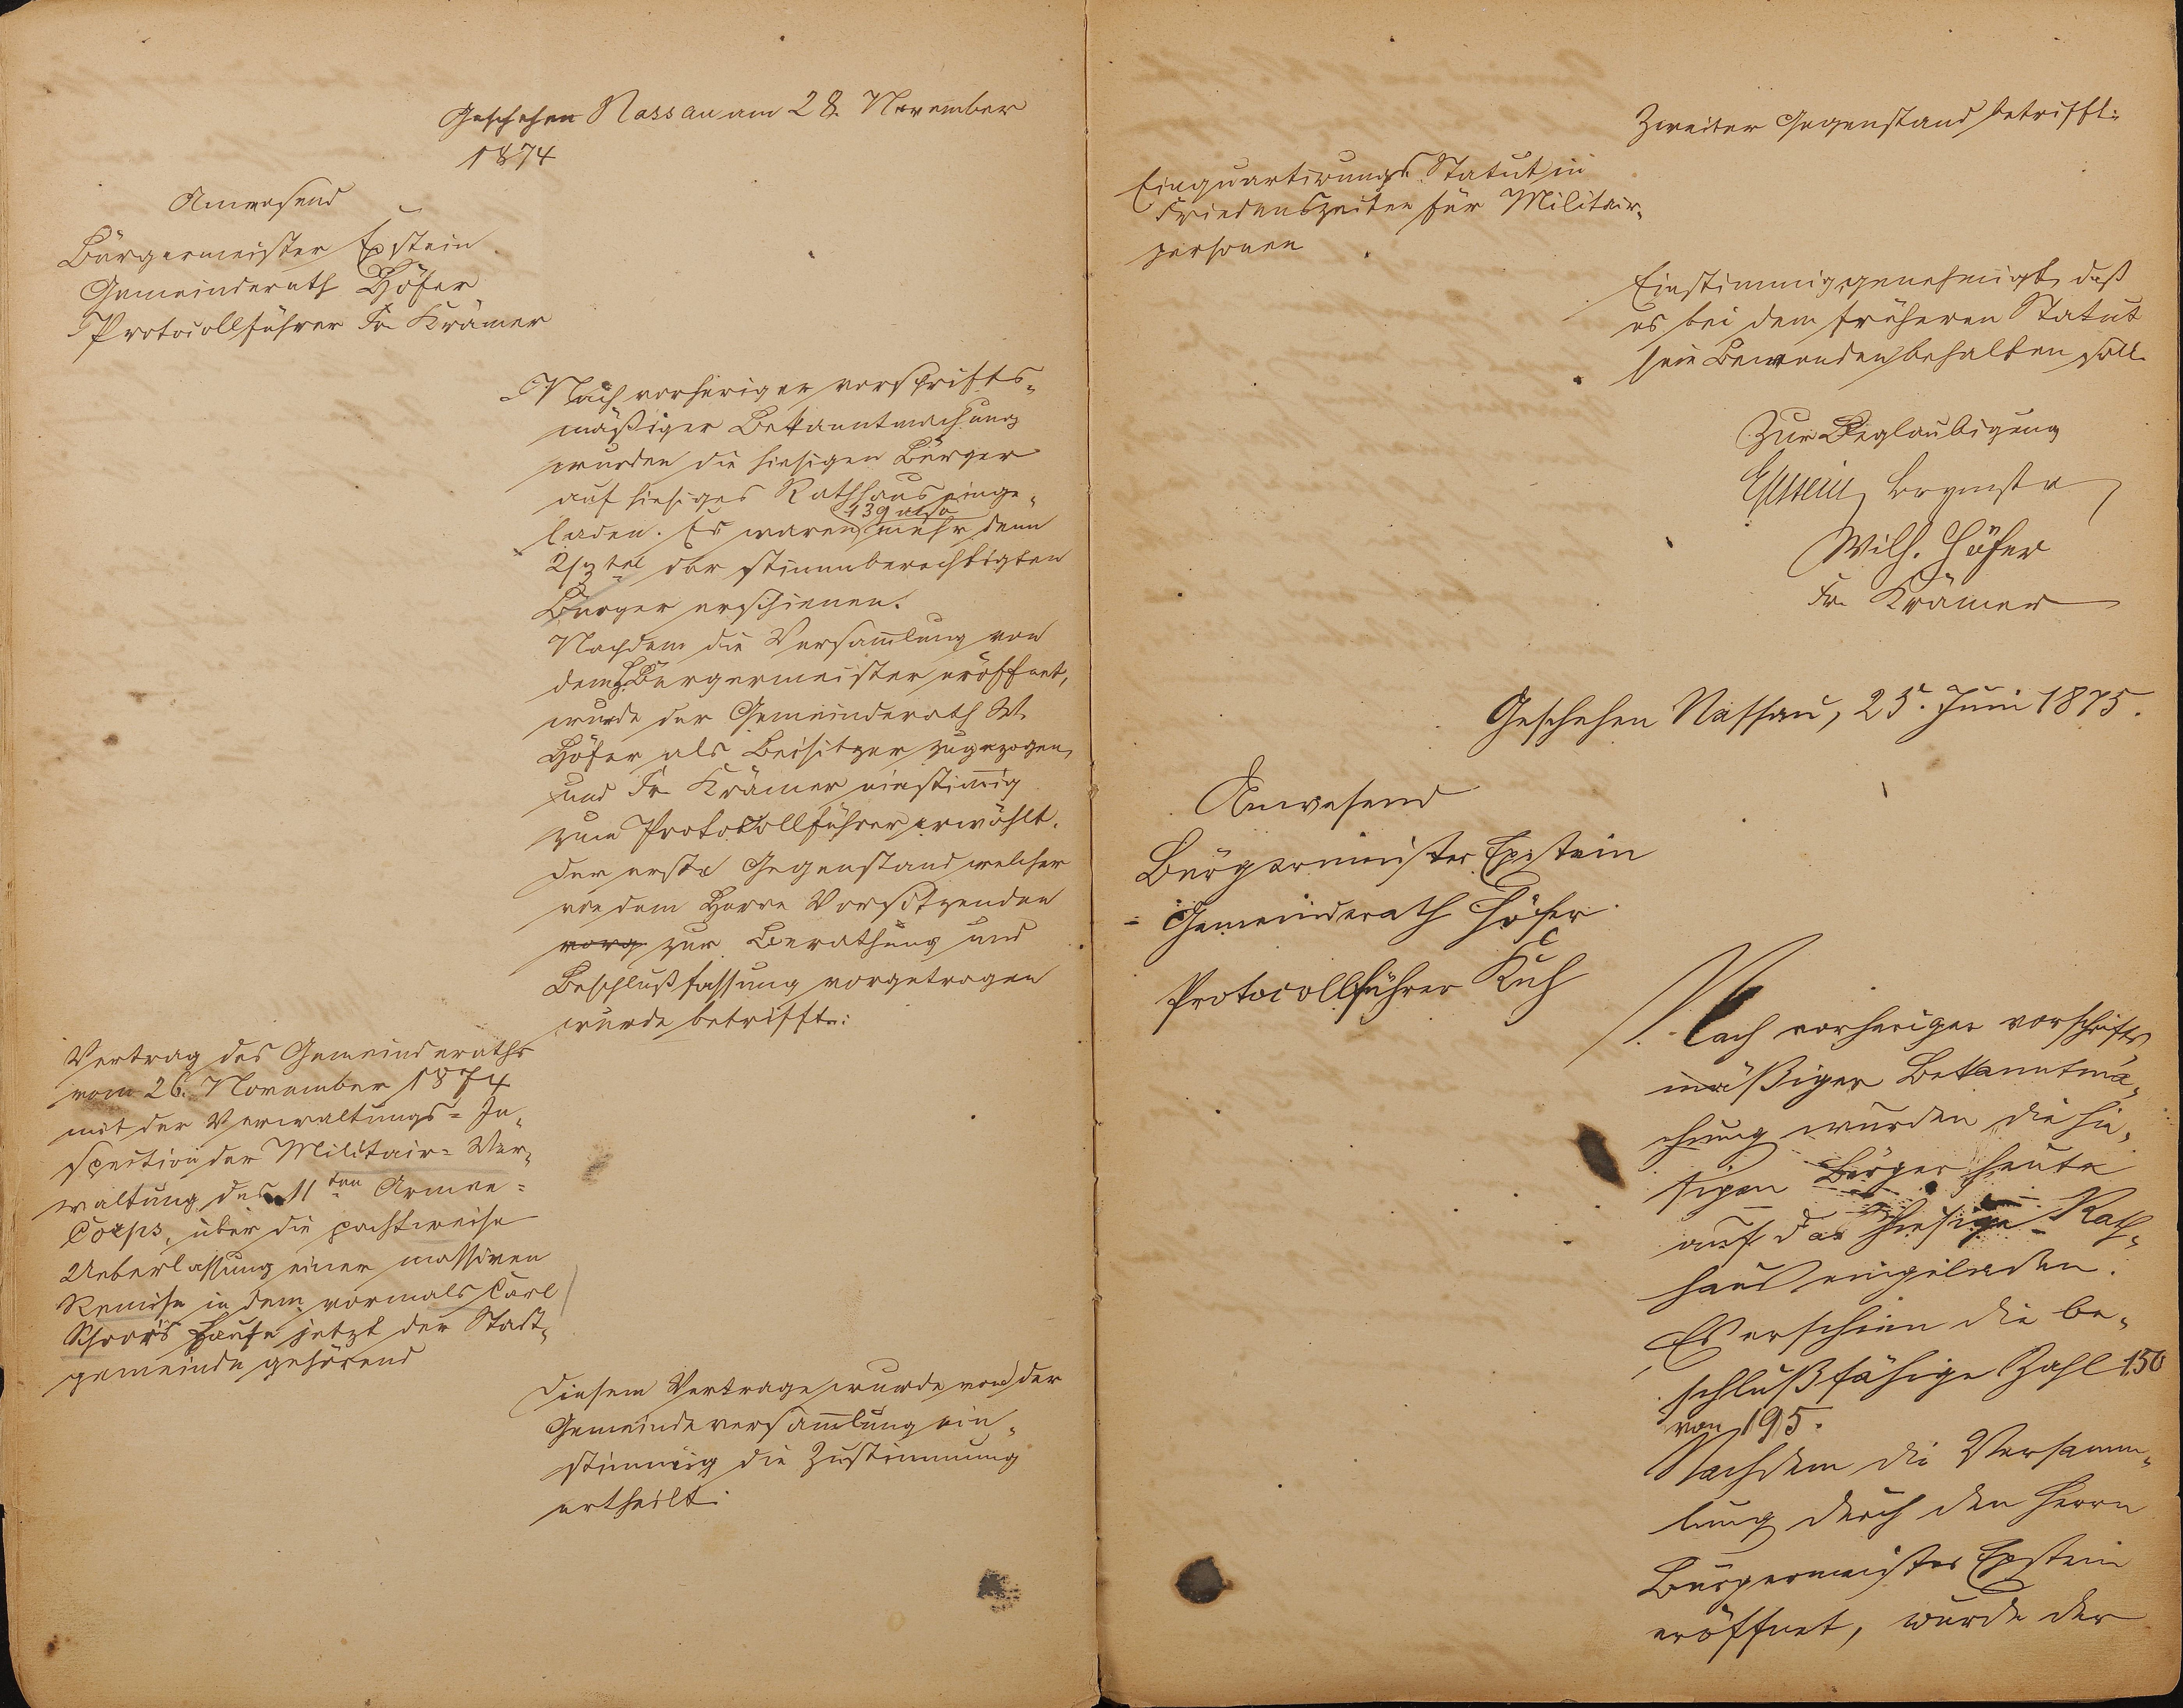 Geschehen Nassau am 28. November
1874
Anwesend
Bürgermeister Epstein
Gemeinderath Höfer
Protocollführer Fr Krämer
Nach vorheriger vorschrifts-
mäßiger Bekanntmachung
wurden die hiesigen Bürger
auf hiesiges Rathhaus einge-
laden. Es waren 139 also mehr denn
2/3 tel der stimmberechtigten
Bürger erschienen.
Nachdem die Versamlung von
dem H. Bürgermeister eröffnet,
wurde der Gemeinderath W.
Höfer als Beisitzer zugezogen
und Fr Krämer einstimig
zum Protokollführer erwählt.
Der erste Gegenstand welcher
von dem Herrn Vorsitzenden
vorg zur Berathung und
Beschlußfassung vorgetragen
wurde betrifft:
Vertrag des Gemeinderaths
vom 26. November 1874
mit der Verwaltungs-In-
spection der Militair-Ver-
waltung des 11ten Armee-
Corps, über die pachtweise
Ueberlassung einer massiven
Remise in dem vormals Carl
Schorr's Hause jetzt der Stadt-
gemeinde gehörend
Diesem Vertrage wurde von der
Gemeindeversamlung ein-
stimmig die Zustimmung
ertheilt.
Zweiter Gegenstand betrifft:
Einquartirungs Statut in
Friedenszeiten für Militair-
personen
Einstimmig genehmigt, daß
es bei dem früheren Statut
sein Bewenden behalten soll.
Zur Beglaubigung
Epstein, Brgmstr
Wilh. Höfer
Fr. Krämer
Geschehen Nassau, 25. Juni 1875.
Anwesend
Bürgermeister Epstein
Gemeinderath Höfer
Protocollführer Kuh
Nach vorheriger vorschrifts
mäßiger Bekanntma-
chung wurden die hie-
sigen Bürger heute
auf das hiesige Rath-
haus eingeladen.
Es erschien die be-
schlußfähige Zahl 150
von 195.
Nachdem die Versamm-
lung durch den Herrn
Bürgermeister Epstein
eröffnet, wurde der